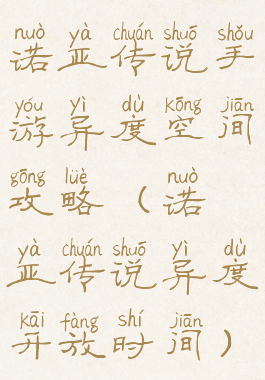 nuò yà chuán shuō shǒu
诺亚传说手
yóu yì dù kōng jiān
游异度空间
gōng lüè nuò
攻略（诺
yà chuán shuō yì dù
亚传说异度
kāi fàng shí jiān
开放时间）